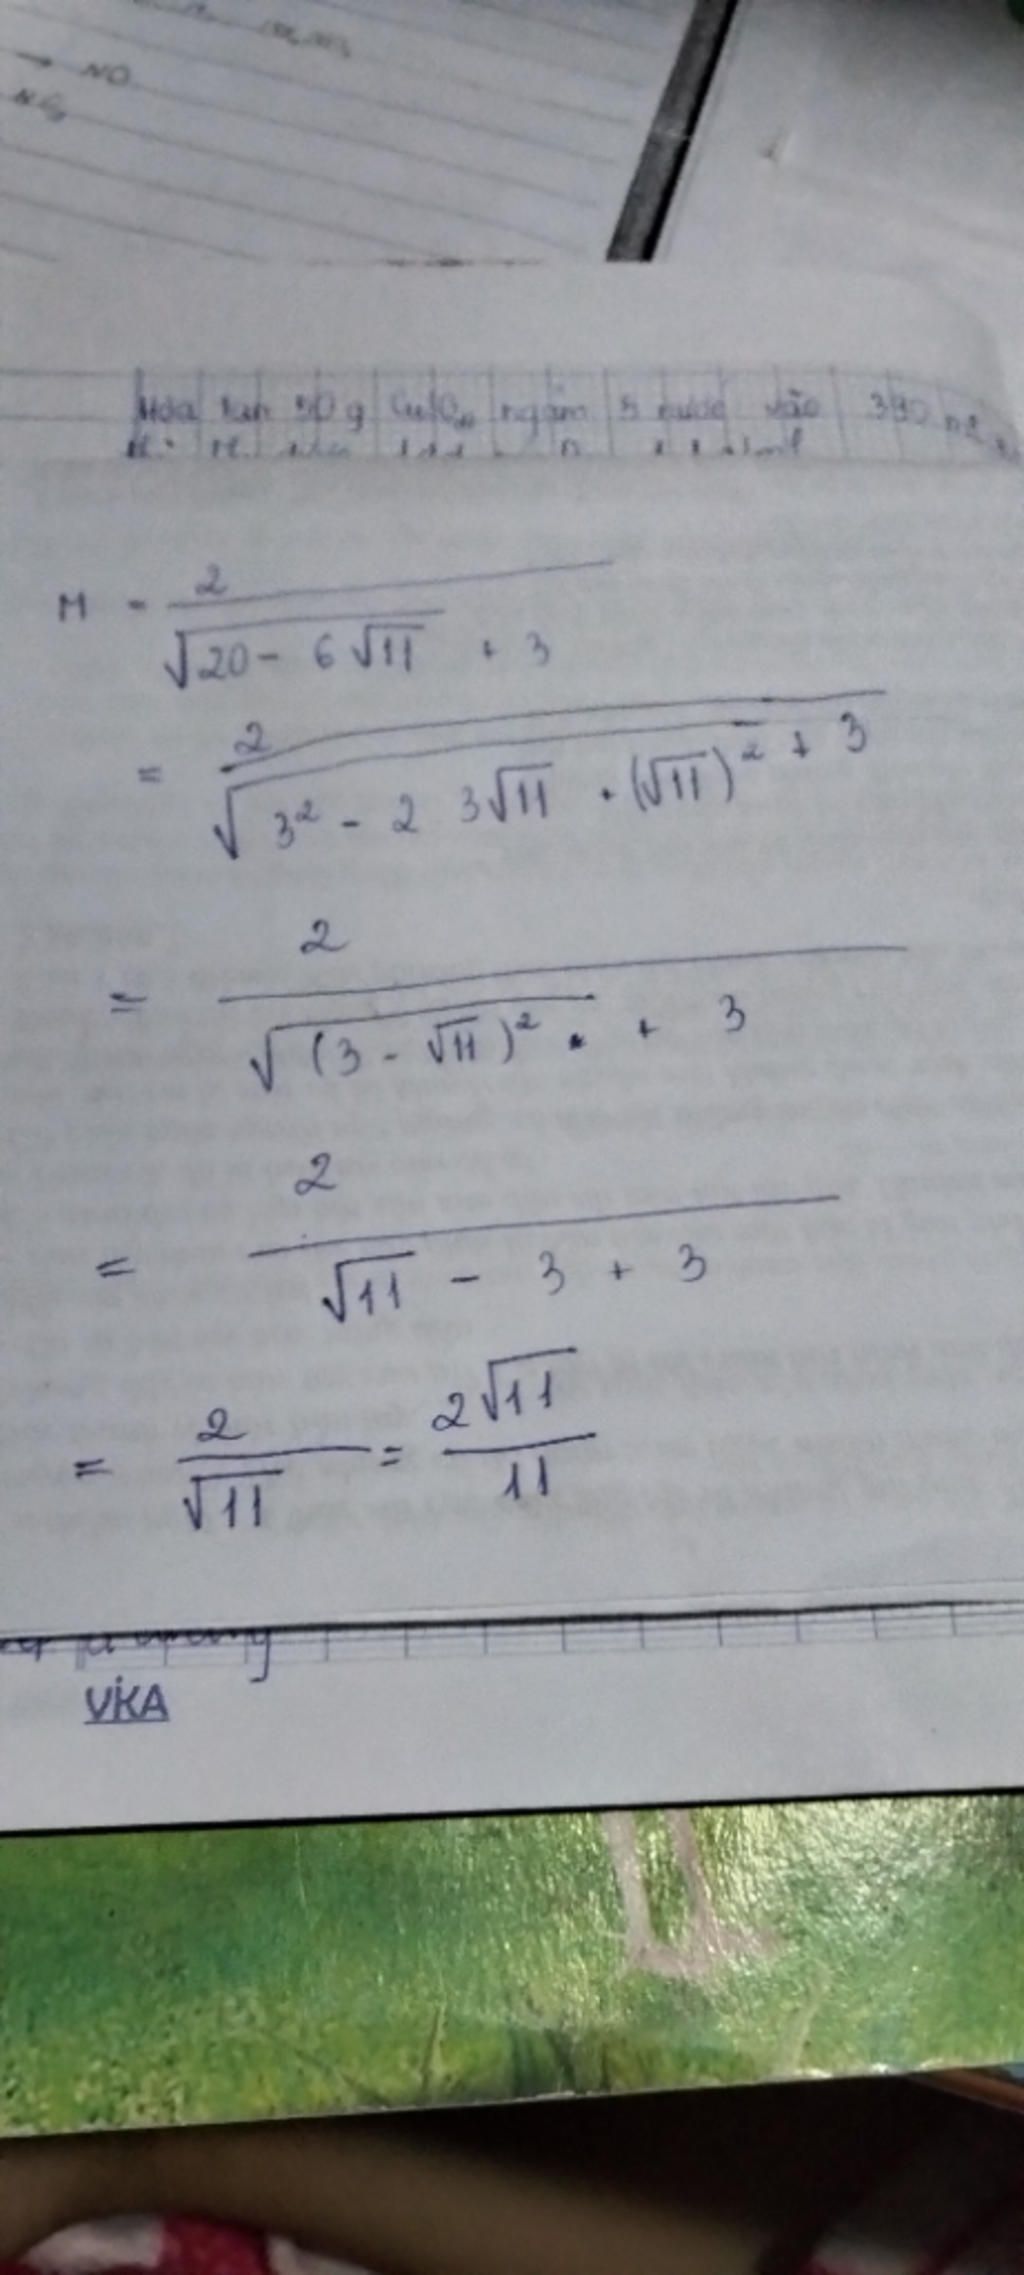 → NO
Hòa tan 50 g ngậm 5 nước vào 390 ml
M = 2 / (√(20 - 6√11) + 3)
= 2 / (√(3² - 2 3√11 + (√11)²) + 3)
= 2 / (√((3 - √11)²) + 3)
= 2 / (√11 - 3 + 3)
= 2/√11 = 2√11/11
VIKA